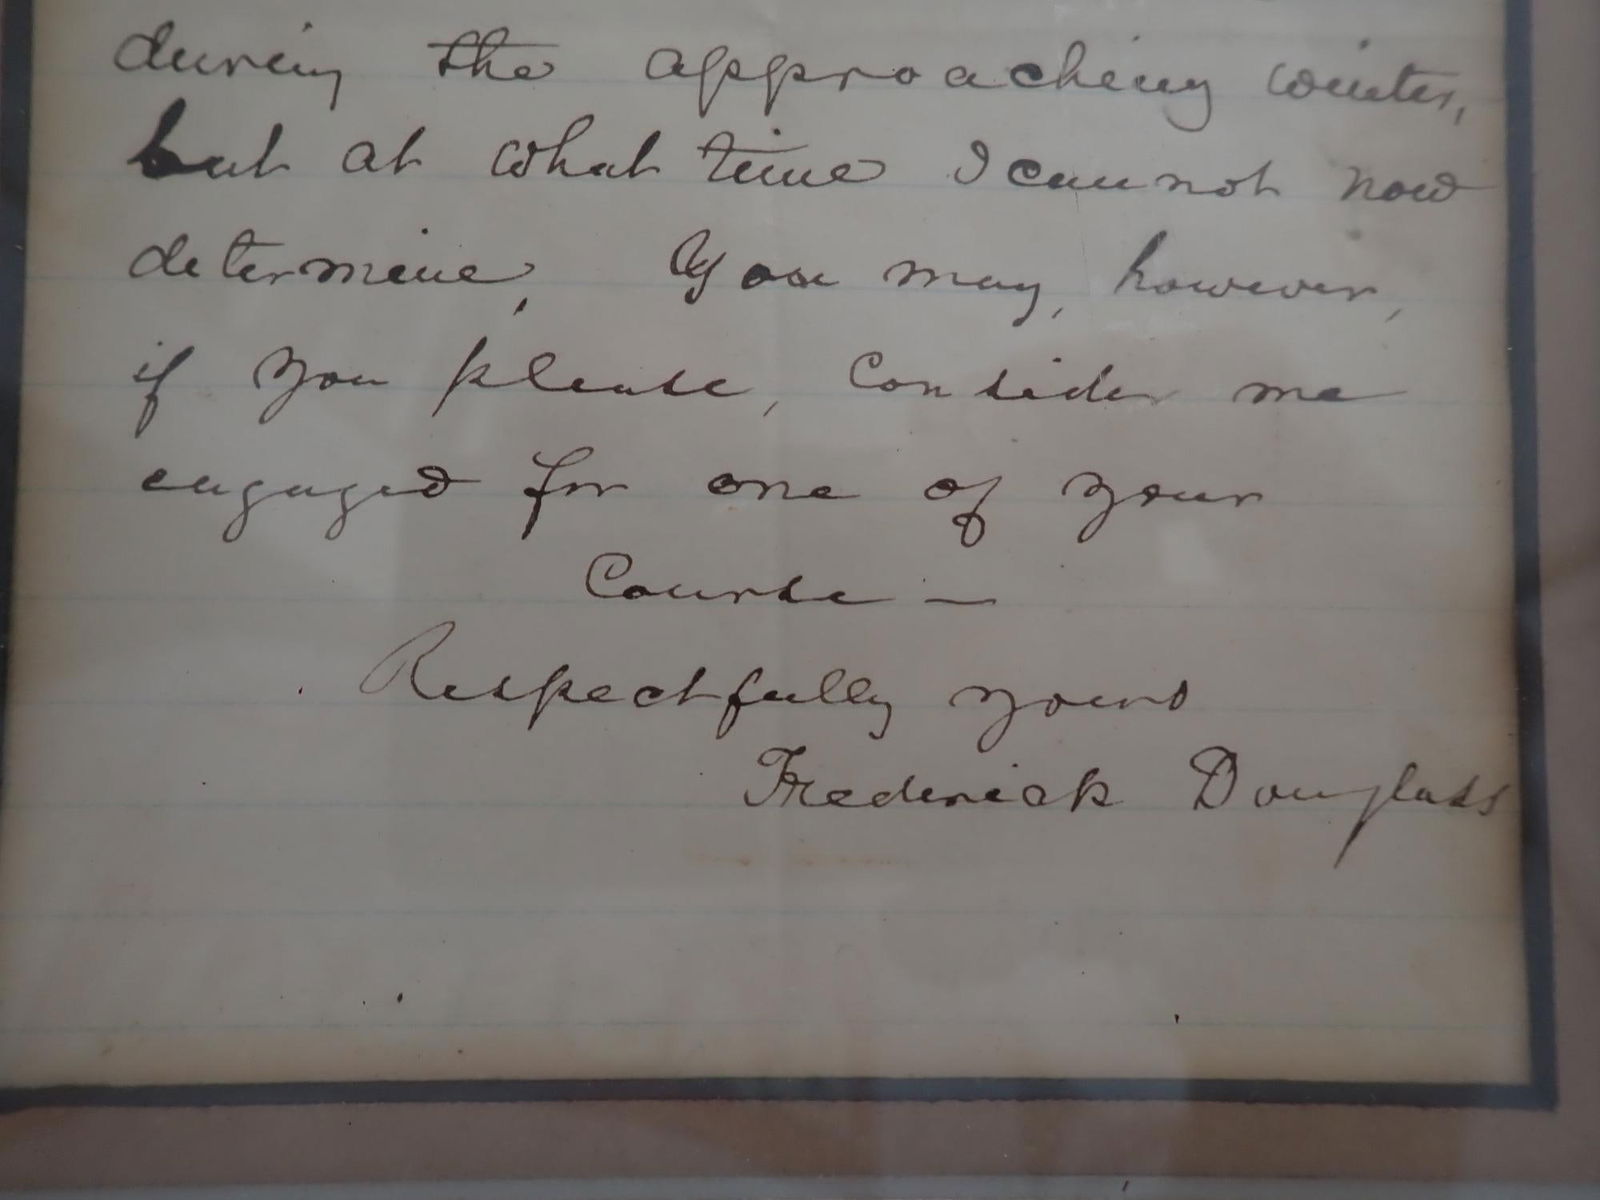 during the approaching winter,
but at what time I cannot now
determine. You may, however,
if you please, consider me
engaged for one of your
Course —
Respectfully yours
Frederick Douglass